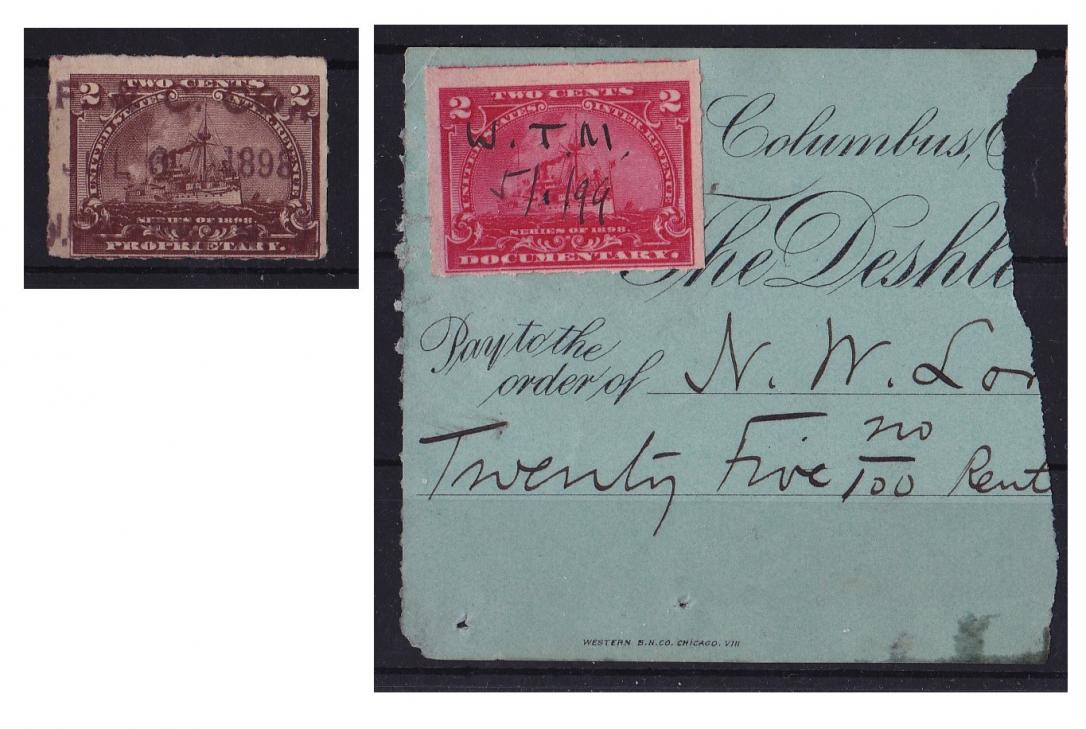 2 TWO CENTS 2
UNITED STATES INTER. REVENUE
1898
SERIES OF 1898.
PROPRIETARY.
2 TWO CENTS 2
UNITED STATES INTER. REVENUE
W. T. M.
5/1/99
SERIES OF 1898.
DOCUMENTARY.
Columbus,
The Deshle
Pay to the
order of N. W. Lor
Twenty Five no/100 Rent
WESTERN B.N.CO. CHICAGO. VIII